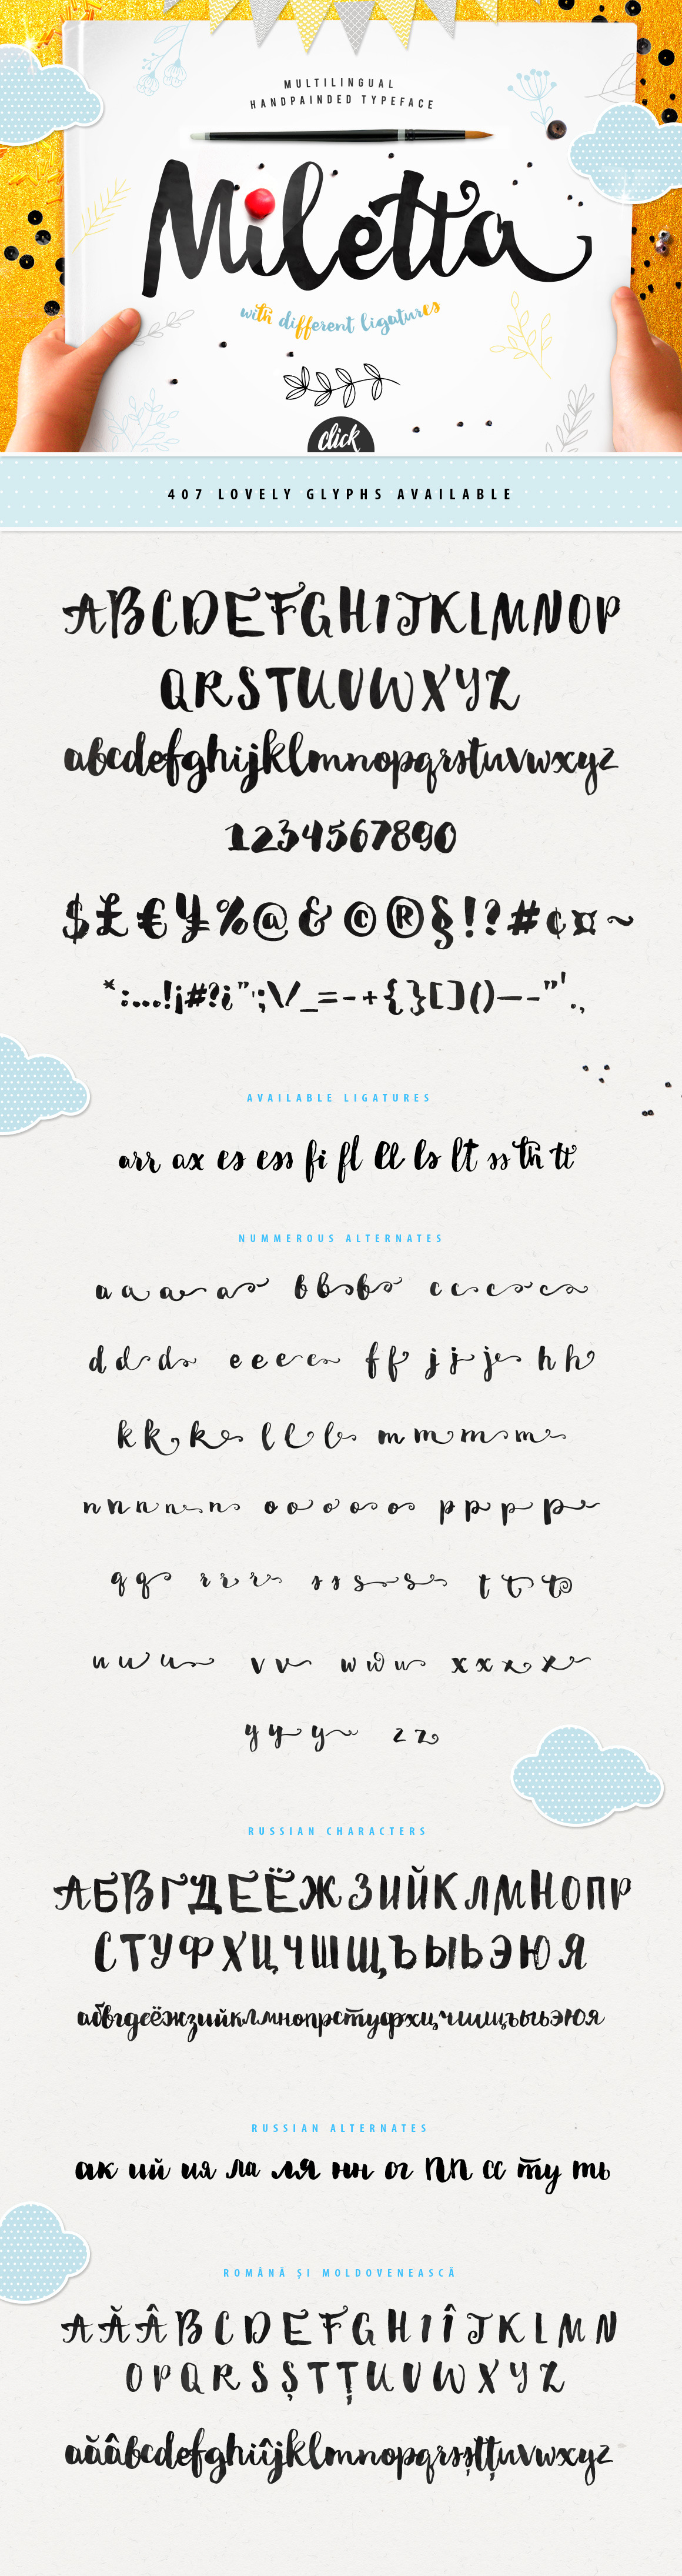 MULTILINGUAL
HANDPAINDED TYPEFACE
Miletta
with different ligatures
click
407 LOVELY GLYPHS AVAILABLE
ABCDEFGHIJKLMNOP
QRSTUVWXYZ
abcdefghijklmnopqrstuvwxyz
1234567890
$£€¥%@&©®§!?#¢¤~
*:...!¡#?¿"';\/_=-+{}[]()—-"'.,
AVAILABLE LIGATURES
arr ax es ess fi fl ll ls lt ss th tt
NUMMEROUS ALTERNATES
a a a a b b b c c c c
d d d e e e e f f j j j h h
k k k l l l m m m m
n n n n n o o o o o p p p p
q q r r r s s s s t t t
u u u v v w w w x x x x
y y y z z
RUSSIAN CHARACTERS
АБВГДЕЁЖЗИЙКЛМНОПР
СТУФХЦЧШЩЪЫЬЭЮЯ
абвгдеёжзийклмнопрстуфхцчшщъыьэюя
RUSSIAN ALTERNATES
ак ий ия ла ля нн ог пп сс ту ть
ROMÂNĂ ȘI MOLDOVENEASCĂ
AĂÂBCDEFGHIÎJKLMN
OPQRSȘTȚUVWXYZ
aăâbcdefghiîjklmnopqrsștțuvwxyz